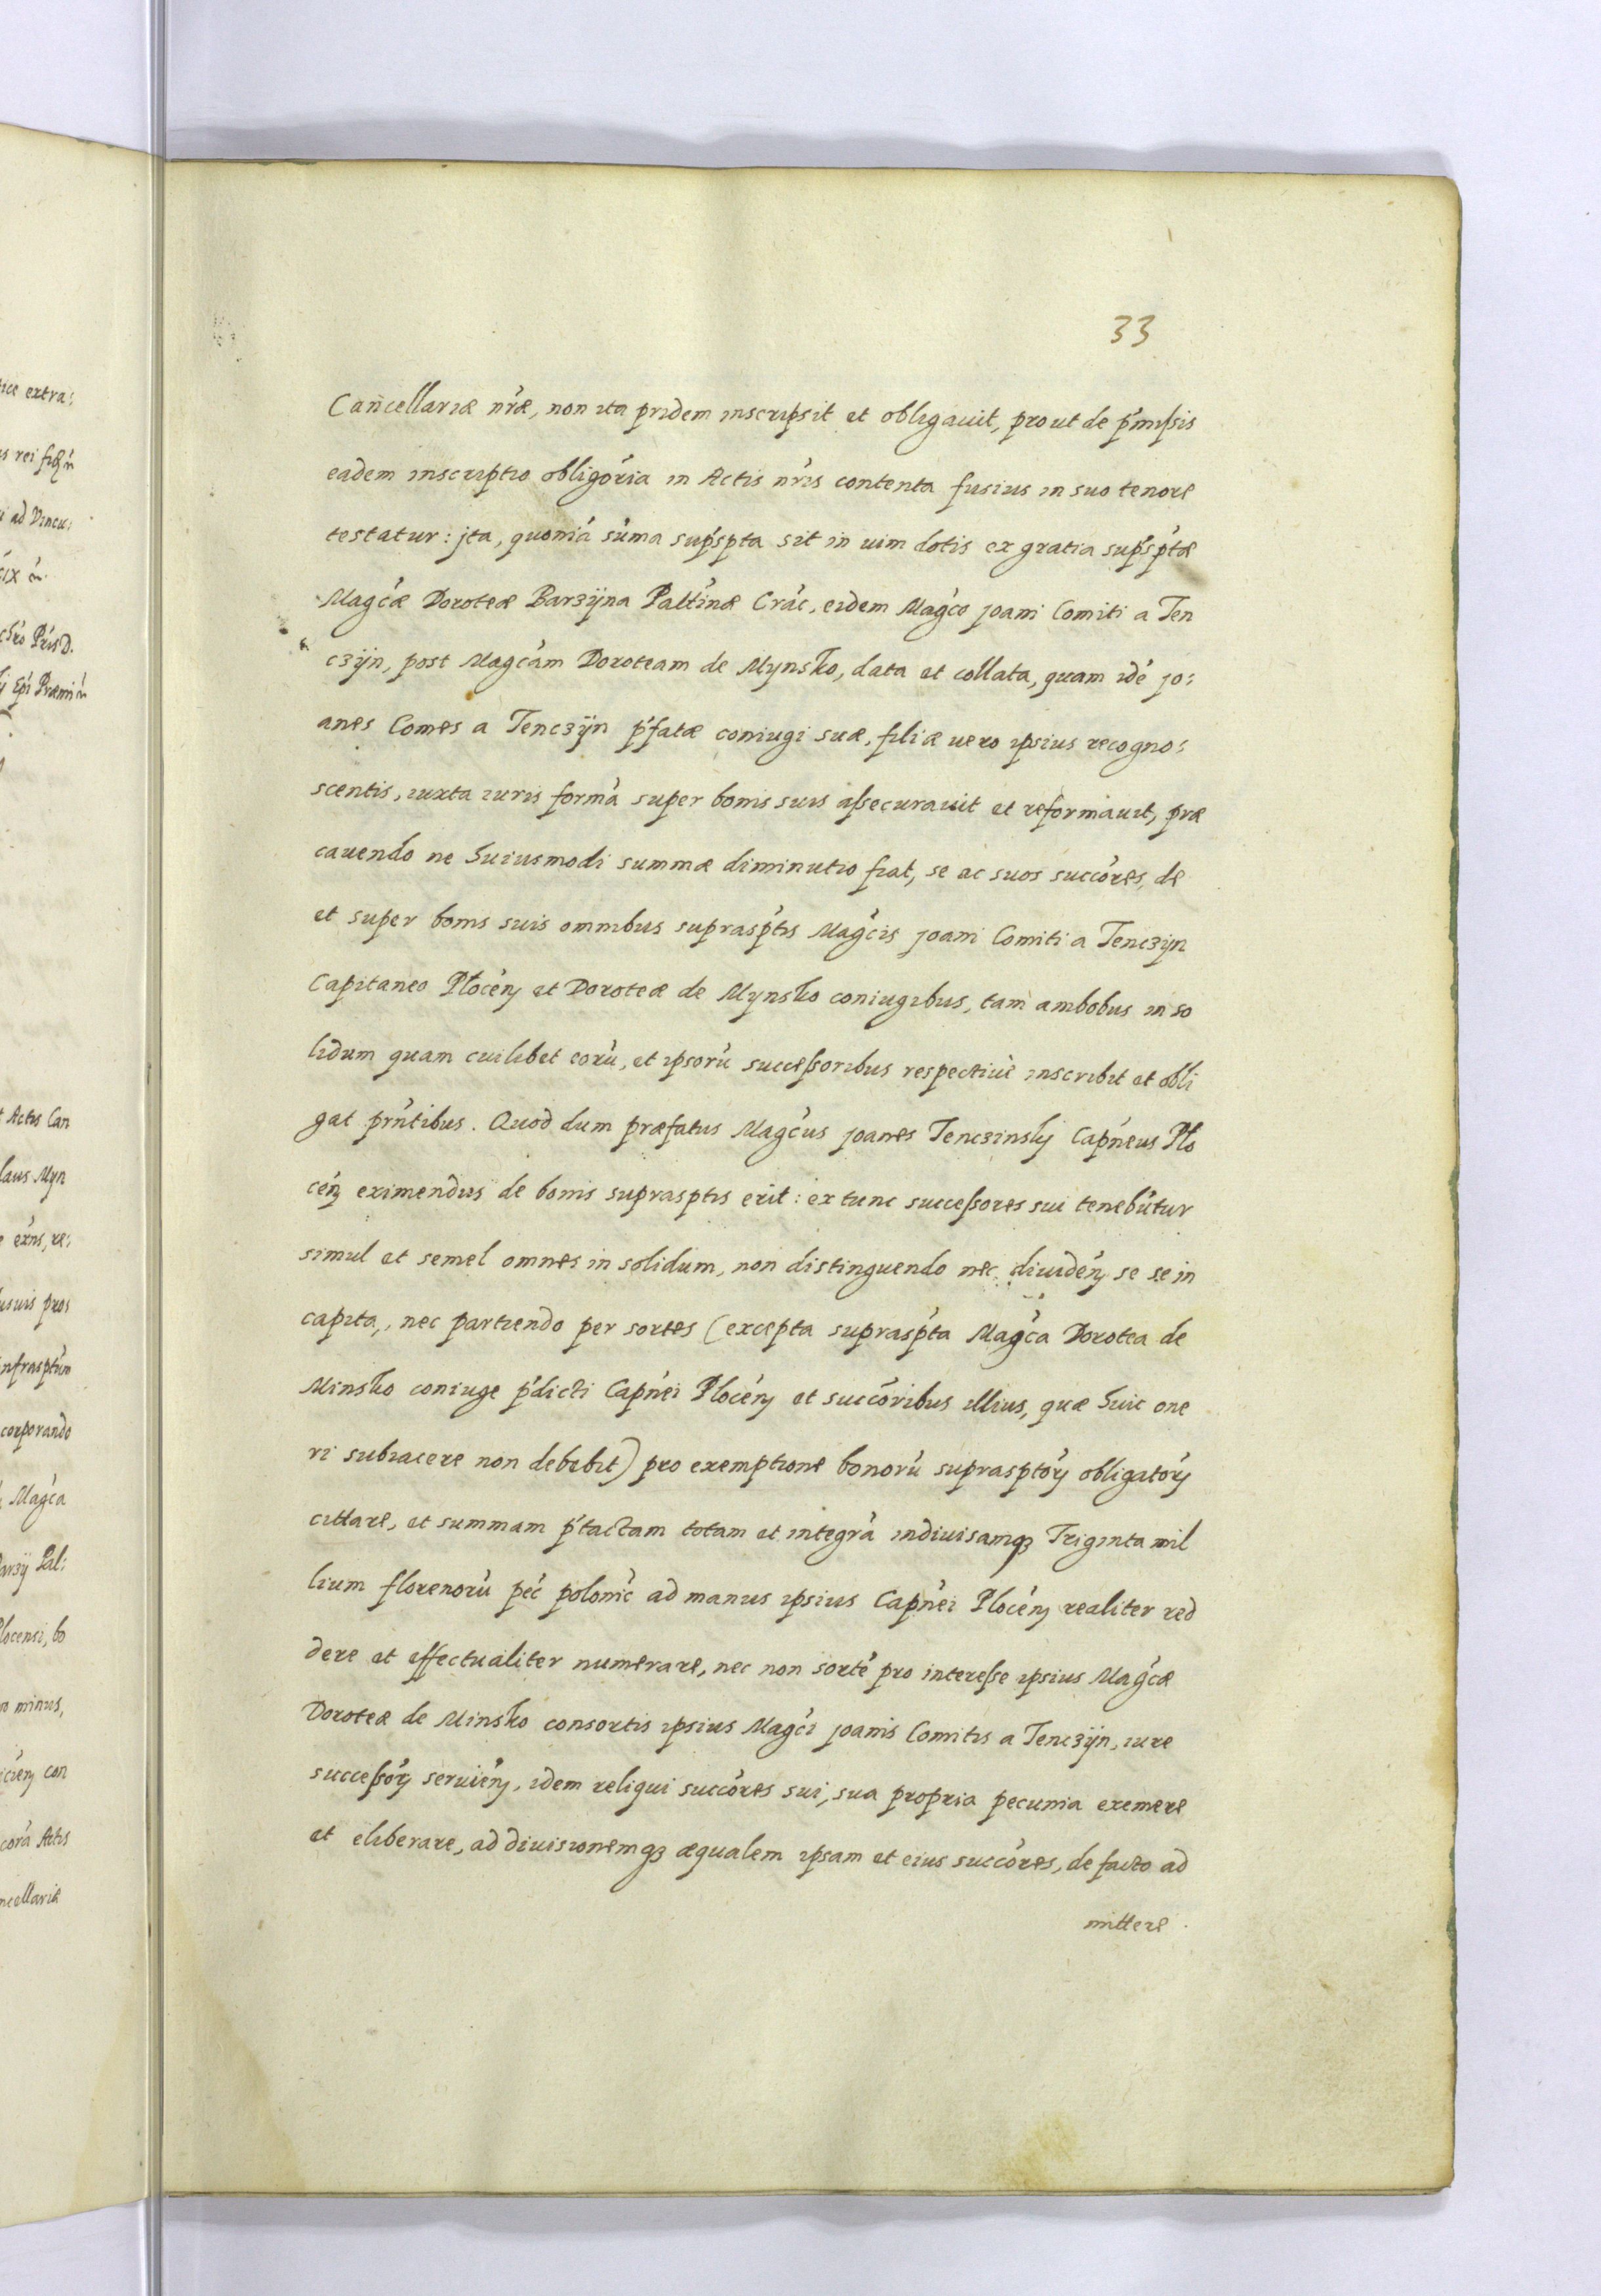 33
Cancellariæ nr̃æ, non ita pridem inscripsit et obligauit, prout de p̃missis
eadem inscriptio obligõria in Actis nr̃is contenta fusius in suo tenore
testatur: jta, quoniã sũma sup̃spta sit in uim dotis ex gratia sup̃sp̃tæ
Magc̃æ Doroteæ Barzÿna Paltĩnæ Crac̃, eidem Magc̃o joani Comiti a Ten
czÿn, post Magcãm Doroteam de Mynsko, data et collata, quam idẽ jo:
anes Comes a Tenczÿn p̃fatæ coniugi suæ, filiæ uero ipsius recogno:
scentis, iuxta iuris formã super bonis suis assecurauit et reformauit, præ
cauendo ne huiusmodi summæ diminutio fiat, se ac suos succõres, de
et super bonis suis omnibus suprasp̃tis Magc̃is joani Comiti a Tenczÿn
Capitaneo Płocẽn et Doroteæ de Mynsko coniugibus, tam ambobus in so
lidum quam cuilibet eorũ, et ipsorũ successoribus respectiuè inscribit et obli
gat pr̃ntibus. Quod dum præfatus Magc̃us joanes Tenczinskÿ Capñeus Pło
cẽn eximendus de bonis suprasptis erit: ex tunc successores sui tenebũtur
simul et semel omnes in solidum, non distinguendo nec diuidẽn se se in
capita, nec partiendo per sortes (excepta suprasp̃ta Magc̃a Dorotea de
Minsko coniuge p̃dicti Capñei Płocẽn et succõribus illius, quæ huic one
ri subiacere non debebit) pro exemptione bonorũ supraspt̃orꝝ obligatõrꝝ
cittare, et summam p̃tactam totam et integrã indiuisamqꝫ Triginta mil
lium florenorũ pec̃ polonic̃ ad manus ipsius Capñei Płocẽn realiter red
dere et effectualiter numerare, nec non sortẽ pro interesse ipsius Magc̃æ
Doroteæ de Minsko consortis ipsius Magc̃i joanis Comitis a Tenczÿn, iure
successõrꝝ seruiẽn, idem reliqui succõres sui, sua propria pecunia exemere
et eliberare, ad diuisionemqꝫ æqualem ipsam et eius succõres, de facto ad
mittere